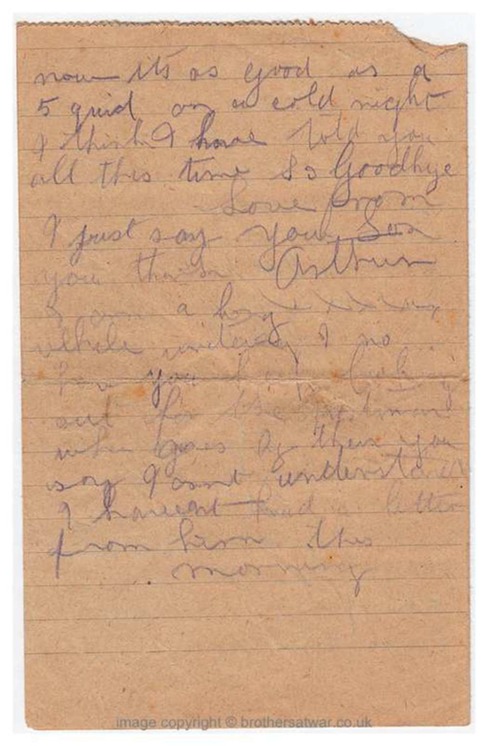 now its as good as a
5 quid on a cold night
I think I have told you
all this time So Goodbye
Love from
I just say your Son
you think Arthur
I am a long
while writing I no
how you keep looking
out for the postman
when goes by then you
say I cant understand
I havent had a letter
from him this
morning
image copyright © brothersatwar.co.uk